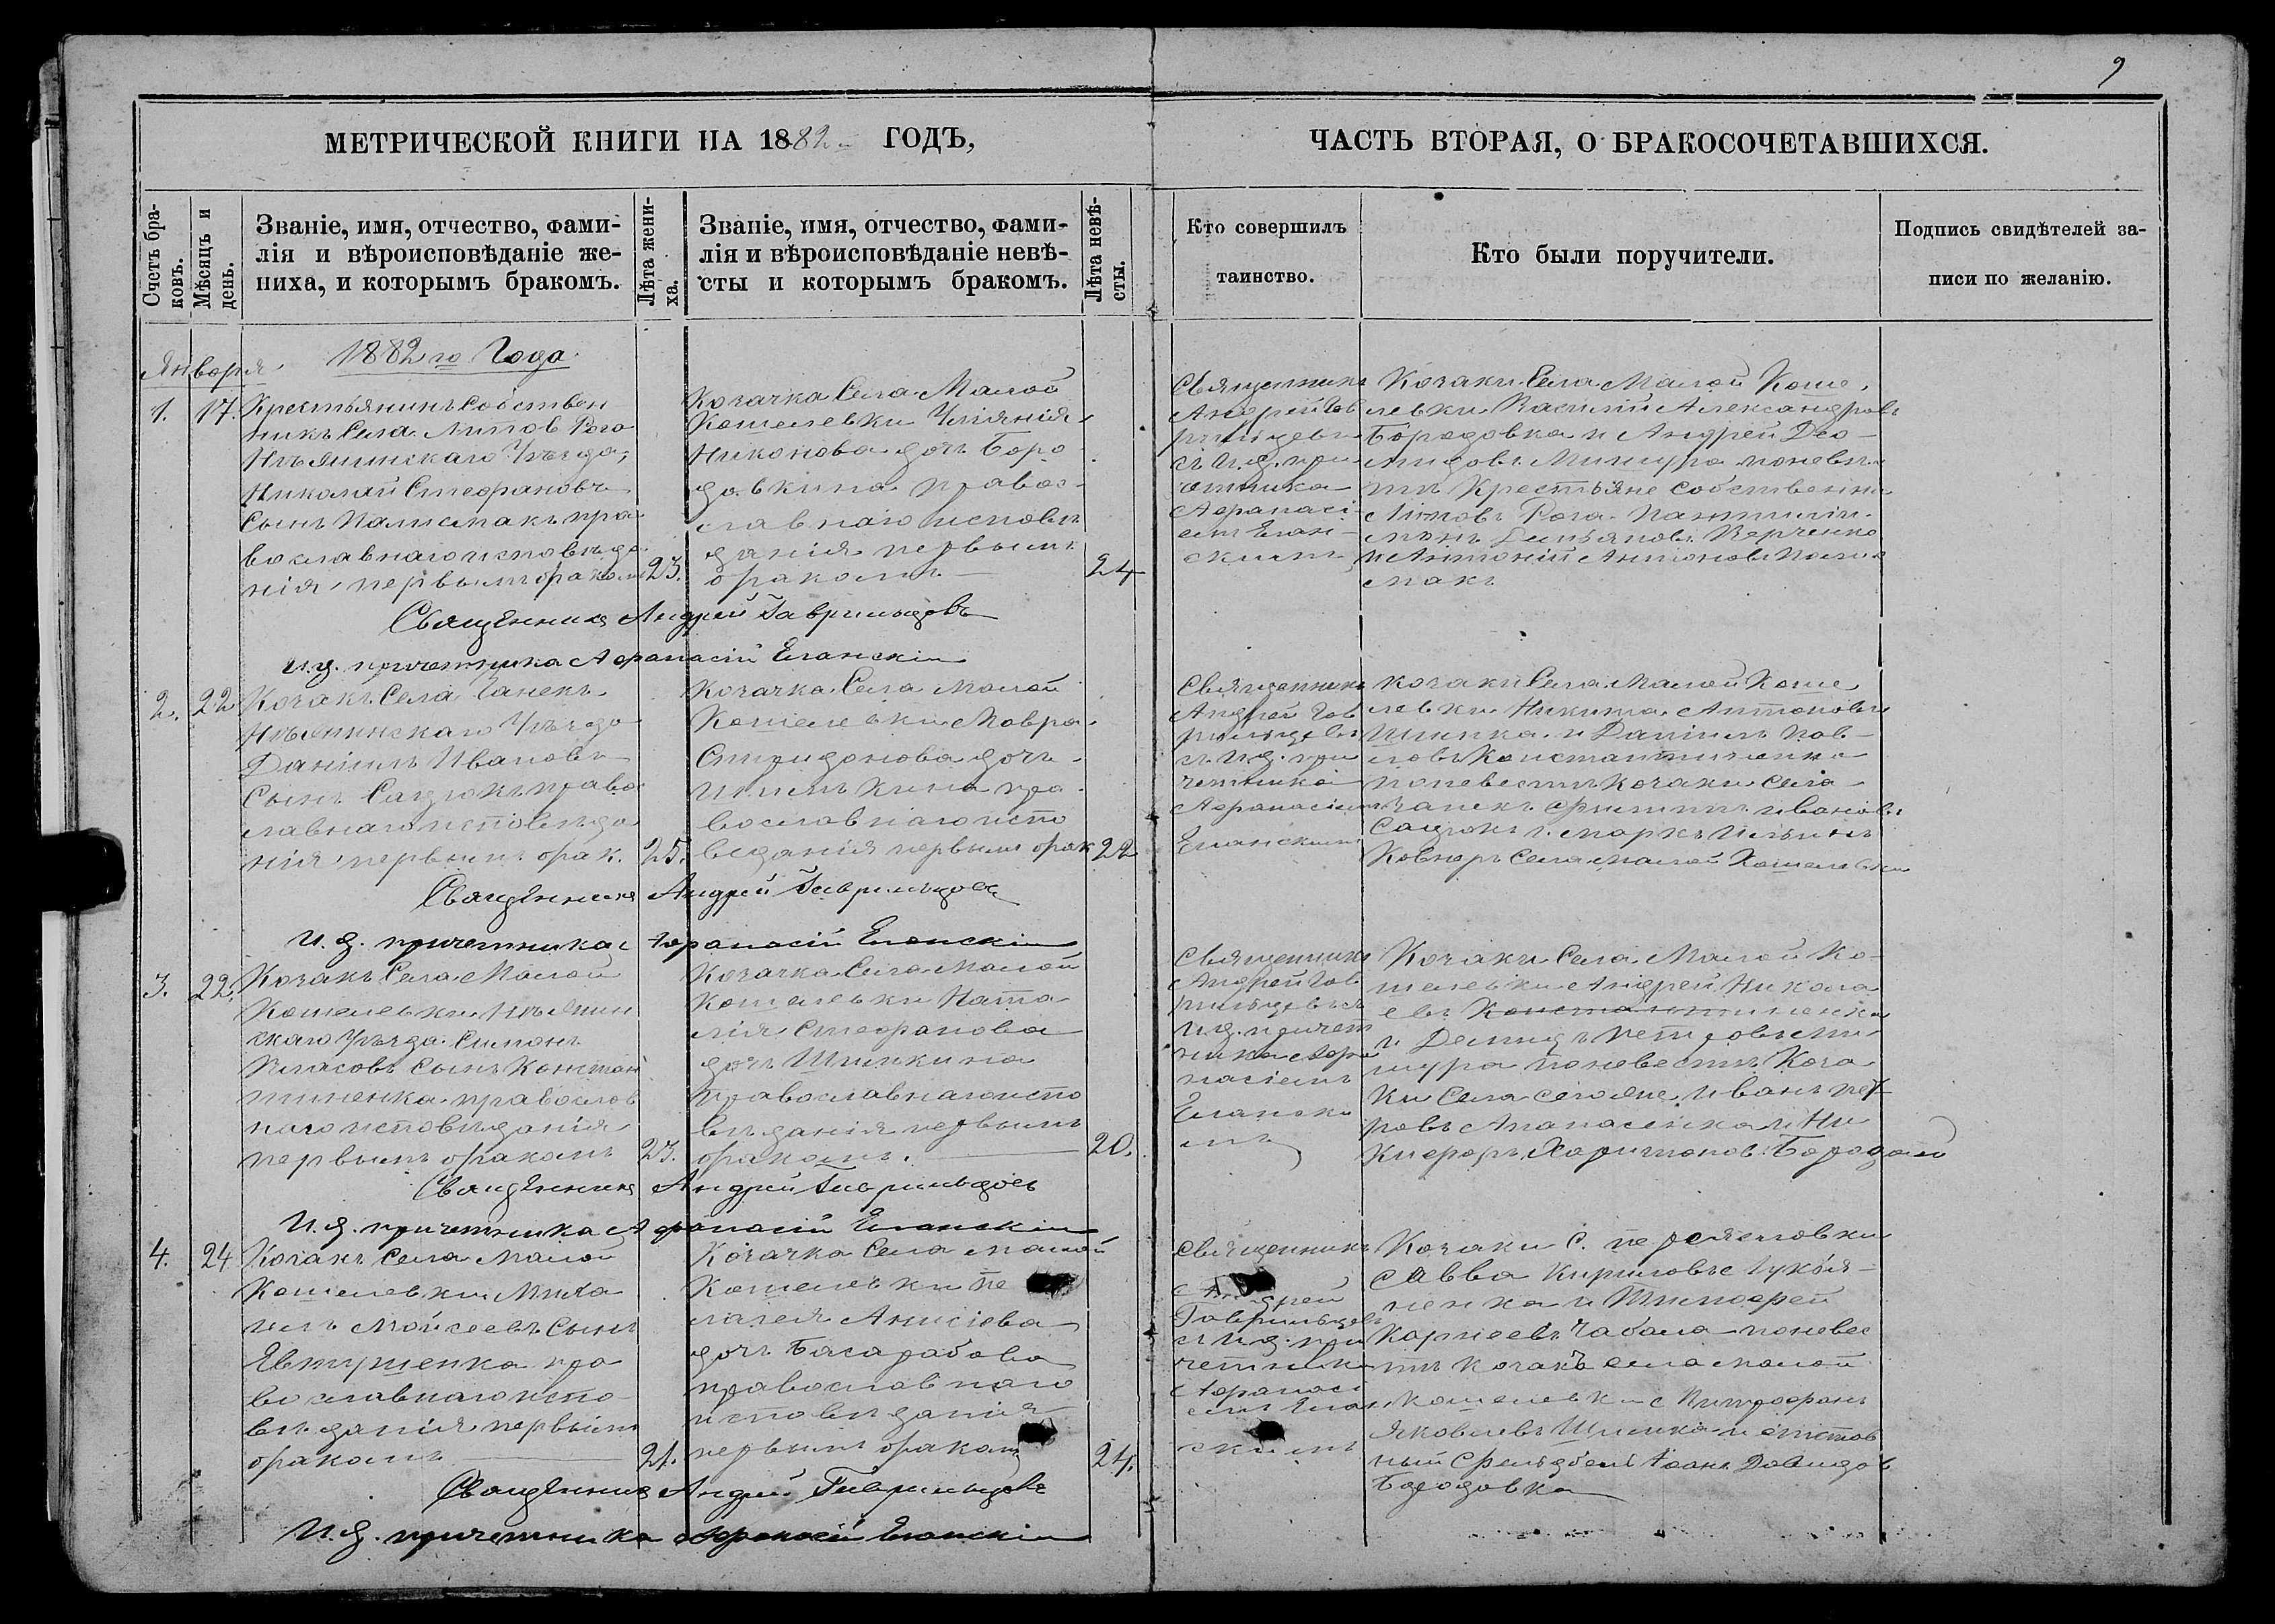 9
МЕТРИЧЕСКОЙ КНИГИ НА 1882 ГОДЪ,
ЧАСТЬ ВТОРАЯ, О БРАКОСОЧЕТАВШИХСЯ.
Счетъ бра-
ковъ.
Мѣсяцъ и
день.
Званіе, имя, отчество, фами-
лія и вѣроисповѣданіе же-
ниха, и которымъ бракомъ.
Лѣта жени-
ха.
Званіе, имя, отчество, фами-
лія и вѣроисповѣданіе невѣ-
сты и которымъ бракомъ.
Лѣта невѣ-
сты.
Кто совершилъ
таинство.
Кто были поручители.
Подпись свидѣтелей за-
писи по желанію.
Января
1882 го Года
1.
17.
Крестьянинъ собствен
никъ Села Липов Рога
Нѣжинскаго Уѣзда,
Николай Стефановъ
Сынъ Паписмакъ пра
вославнаго исповѣда
нія, первымъ бракомъ
23.
Козачка Села Малой
Кошелевки Уліянія
Никонова дочь Боро
довкина правос
лавнаго исповѣ
данія первымъ
бракомъ
24
Священникъ
Андрей Гав
рильцевъ
съ И.д. при
четника
Афанасі
емъ Елан
скимъ
Козаки Села Малой Коше
левки Василій Александровъ
Бородовка и Андрей Део
мидовъ Мишура поневѣс
тѣ Крестьяне собственни
Липовъ Рога Пантилій
монъ Демьяновъ Верченко
и Антоній Антоновъ
макъ
Священникъ Андрей Гаврильцевъ
И.д. причетника Афанасій Еланскій
2.
22
Козакъ Села Талекъ
Нѣжинскаго Уѣзда
Даніилъ Ивановъ
Сынъ Сацюкъ право
славнаго исповѣда
нія первымъ брак.
25.
Козачка Села Малой
Кошелевки Мавра
Спиридонова дочь
Шимкина пра
вославнаго испо
веданія первымъ брак
22
Священникъ
Андрей Гав
рильцевъ
съ И.д. при
четника
Афанасіемъ
Еланскимъ
Козаки Села Малой Коше
левки Никита Антоновъ
Шимка и Даніилъ Пав
ловъ Константиненко
поневестѣ Козаки Села
Талекъ Филиппъ Ивановъ
Сацюкъ и Маркъ Ильинъ
Ковнеръ Села Малой Кошелевки
Священникъ Андрей Гаврильцевъ
И.д. причетника Афанасій Еланскій
3.
22.
Козакъ Села Малой
Кошелевки Нѣжин
скаго Уѣзда Симонъ
Власовъ Сынъ Констан
тиненка православ
наго исповѣданія
первымъ бракомъ
23.
Козачка Села Малой
Кошелевки Ната
лія Стефанова
дочь Шимкина
православнаго испо
вѣданія первымъ
бракомъ.
20.
Священникъ
Андрей Гав
рильцевъ съ
И.д. причет
ника Афа
насіемъ
Елански
мъ
Козаки Села Малой Ко-
шелевки Андрей Никола
евъ Константиненко
и Демидъ Петровъ Ми
шура поневестѣ Коза
ки Села Иванъ Пет
ровъ и Ни
кифоръ Харитоновъ
Священникъ Андрей Гаврильцовъ
И.д. причетника Афанасій Еланскій
4.
24
Козакъ Села Малой
Кошелевки Миха
илъ Мойсеевъ Сынъ
Евтушенка пра
вославнаго испо
вѣданія первымъ
бракомъ
21.
Козачка Села Малой
Кошелевки Пе
лагея Анисіева
дочь Басарабова
православнаго
исповѣданія
первымъ бракомъ
24.
Священникъ
Андрей
Гаврильцевъ
съ И.д. при
четника
Афанасі
емъ Елан
скимъ
Козаки С. Переяловки
Савва Кириловъ Лукья
ненка и Тимофей
Карпеевъ Чабала поневес
тѣ Козакъ Села Малой
Кошелевки Митрофанъ
Яковлевъ Шимка и отстав
ный Іоанъ Давидов
Бородовка
Священникъ Андрей Гаврильцевъ
И.д. причетника Афанасій Еланскій